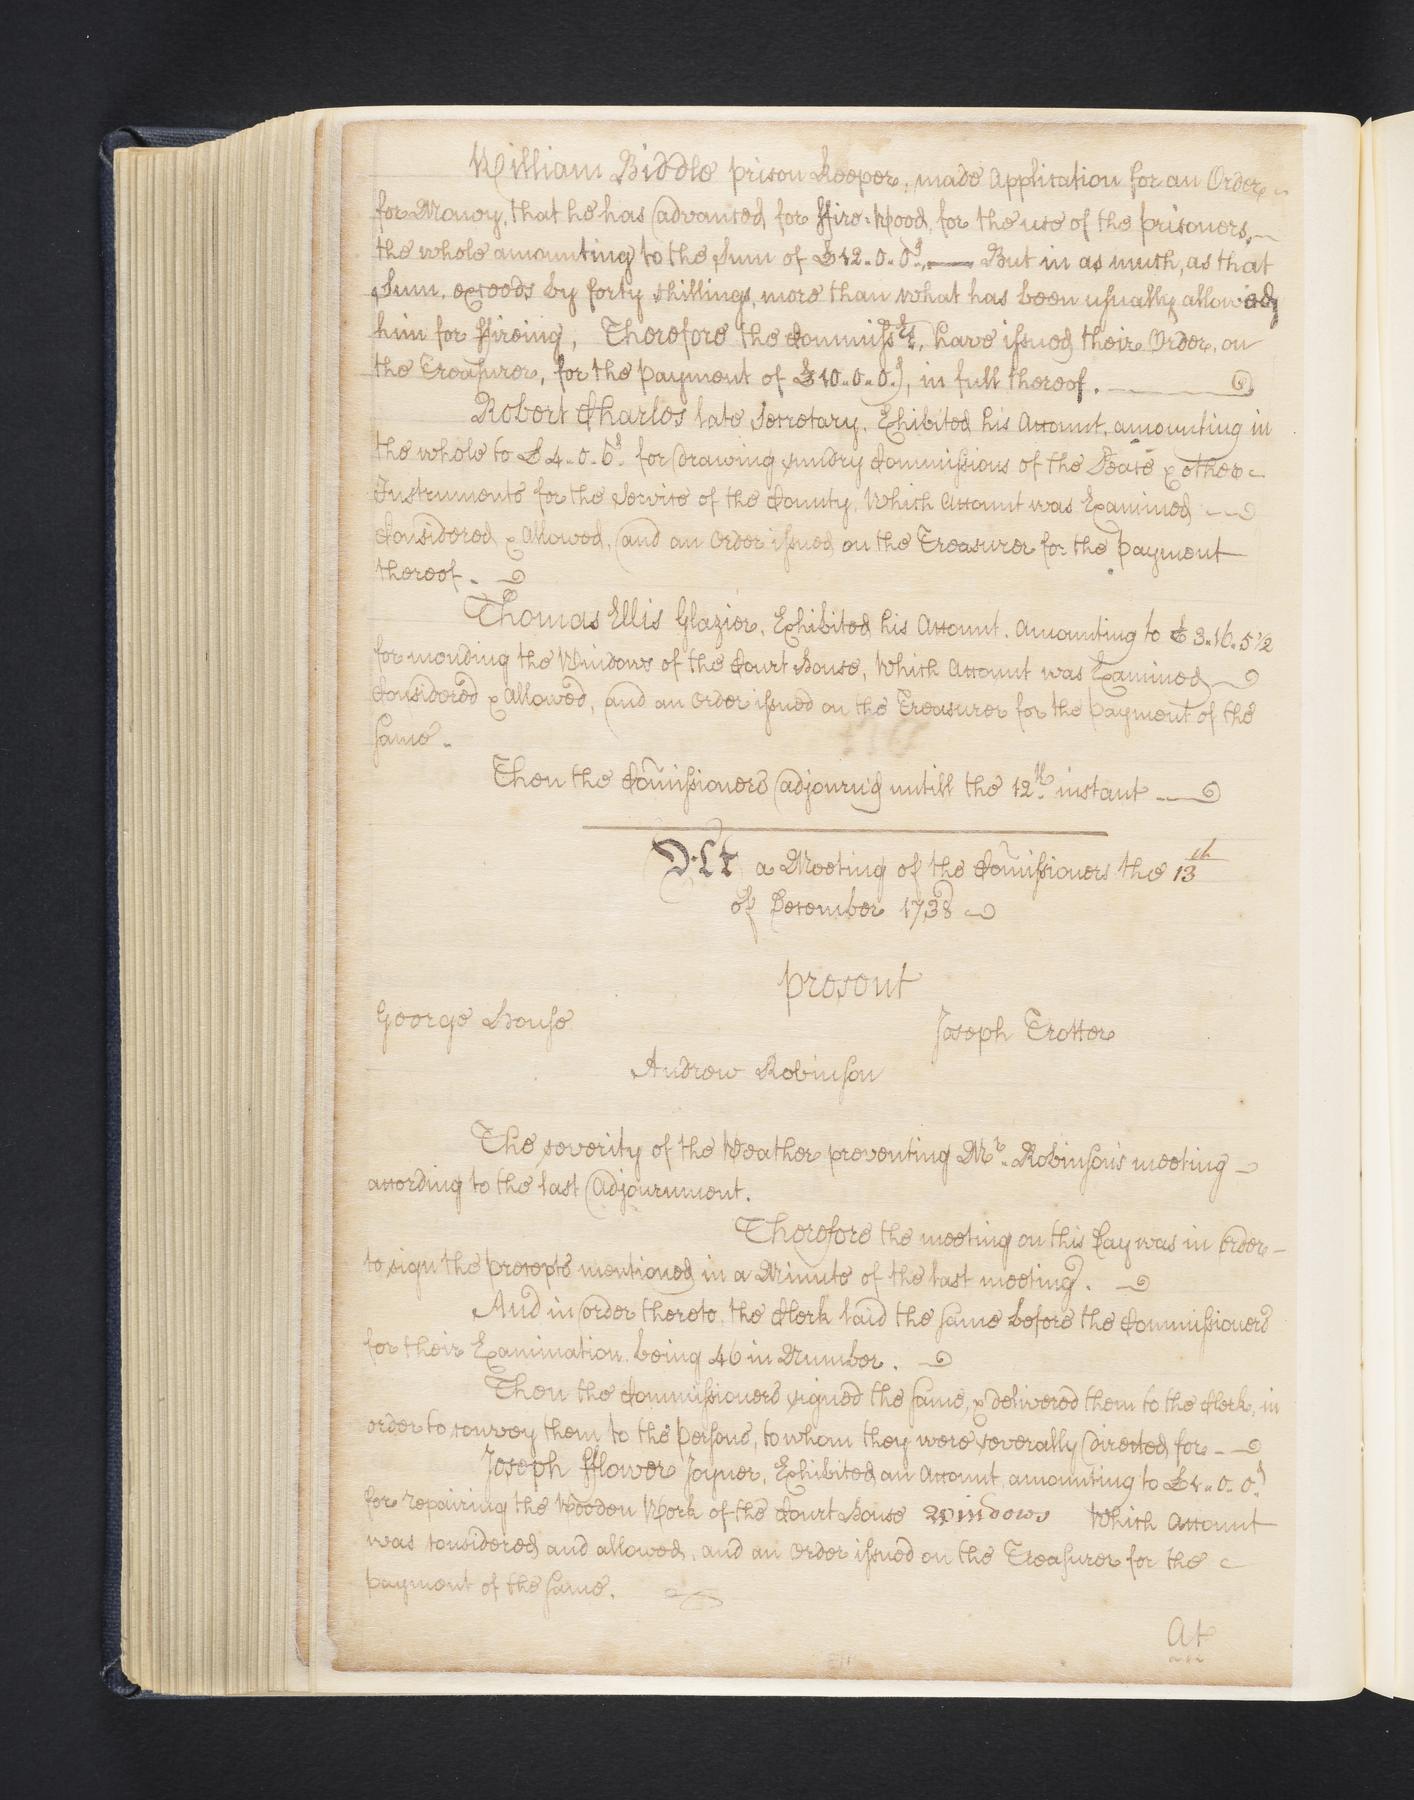 William Biddle prison Keeper, made Application for an Order
for Money, that he has advanced for ffire-Wood, for the use of the prisoners,
the whole amounting to the Sum of £12..0..0d., But in as much, as that
Sum, exceeds by forty shillings, more than what has been usually allowed
him for ffireing, Therefore the Commissrs, have issued their Order, on
the Treasurer, for the payment of £10..0..0d, in full thereof.
Robert Charles late Secretary, Exhibited his Account, amounting in
the whole to £4..0..6d. for drawing sundry Commissions of the Peace & other
Instruments for the Service of the County, Which Account was Examined
Considered & Allowed, and an Order issued on the Treasurer for the payment
thereof.
Thomas Ellis Glazier, Exhibited his Account, Amounting to £3..16..5½
for mending the Windows of the Court House, Which Account was Examined
Considered & Allowed, and an Order issued on the Treasurer for the payment of the
same.
Then the Comissioners adjourn'd untill the 12th. instant
At a Meeting of the Comissioners the 13th
of December 1738
present
George House
Joseph Trotter
Andrew Robinson
The severity of the Weather preventing Mr. Robinson's meeting
according to the last Adjournment.
Therefore the meeting on this Day was in Order
to sign the precepts mentioned in a Minute of the last meeting.
And in order thereto, the Clerk laid the same before the Commissioners
for their Examination, being 46 in Number.
Then the Commissioners signed the same, & delivered them to the Clerk, in
order to convey them to the persons, to whom they were severally directed, for
Joseph fflower Joyner, Exhibited an Account, amounting to £1..0..0d.
for repairing the Wooden Work of the Court House Windows Which Account
was considered and allowed, and an Order issued on the Treasurer for the
payment of the same.
At